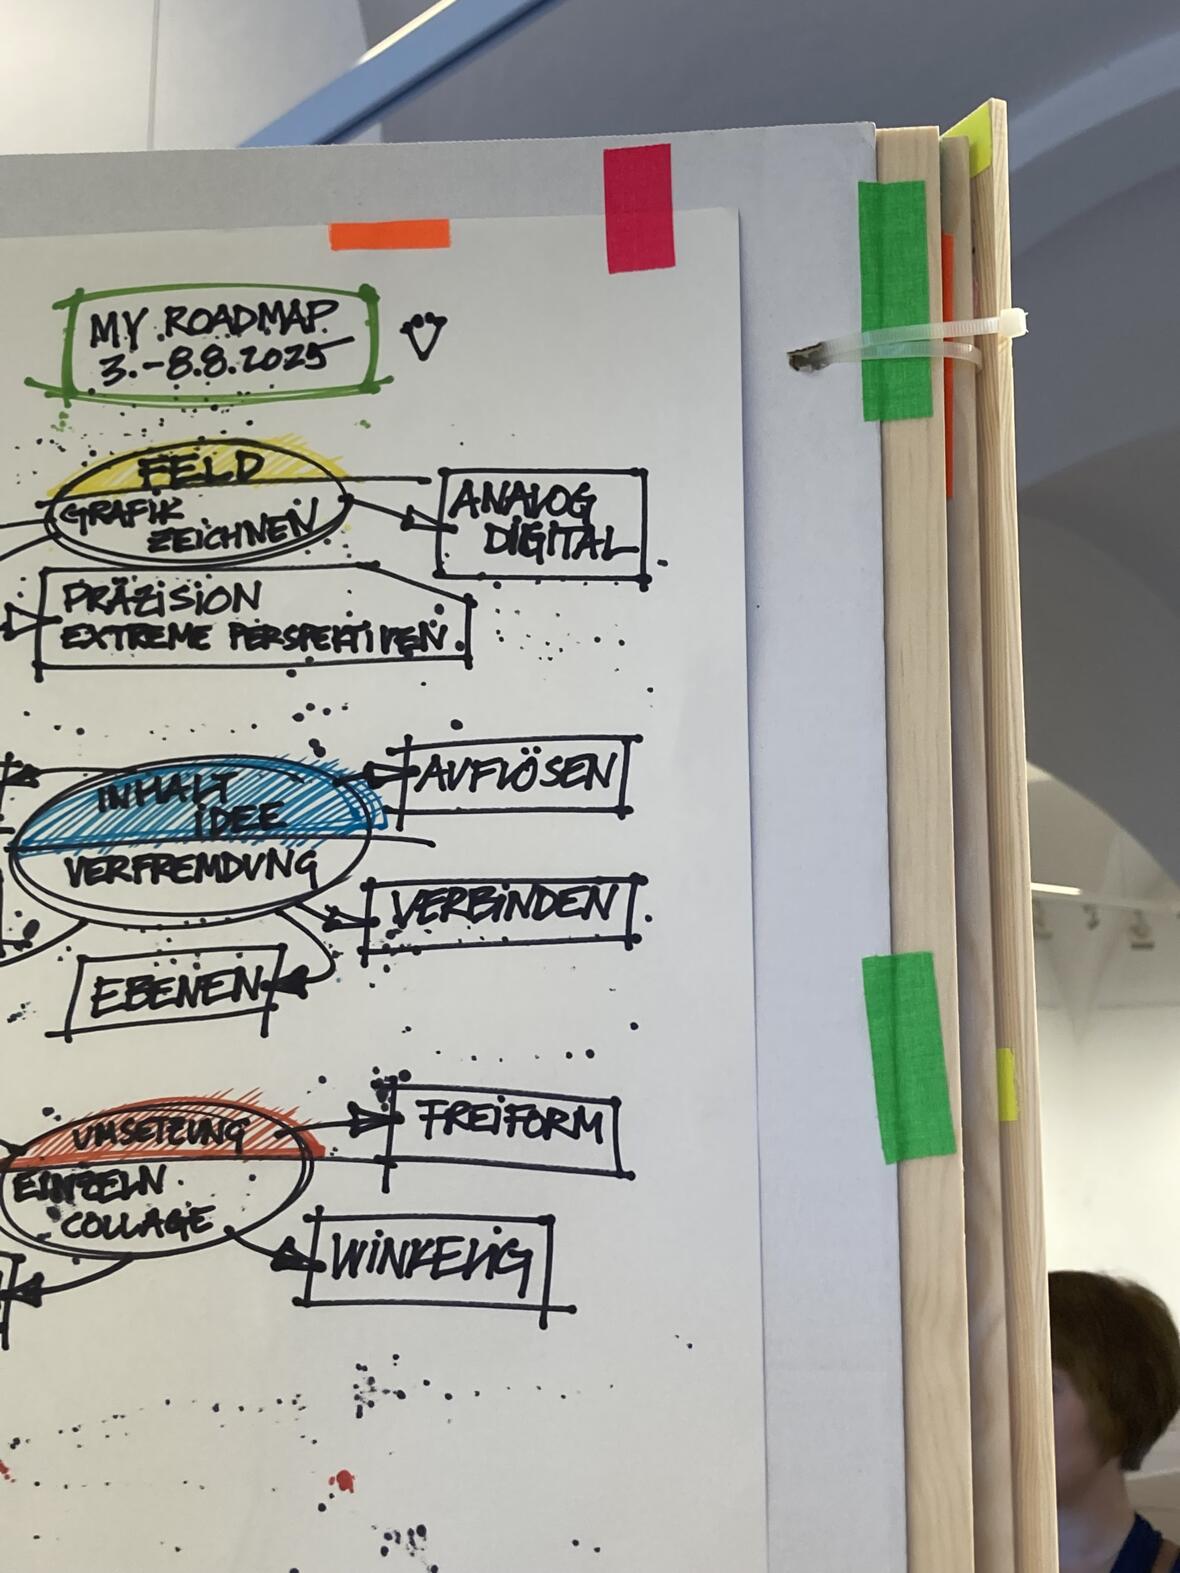 MY ROADMAP
3.-8.8.2025
FELD
GRAFIK
ZEICHNEN
ANALOG
DIGITAL
PRÄZISION
EXTREME PERSPEKTIVEN.
INHALT
IDEE
VERFREMDUNG
AUFLÖSEN
VERBINDEN
EBENEN
UMSETZUNG
EINZELN
COLLAGE
FREIFORM
WINKELIG